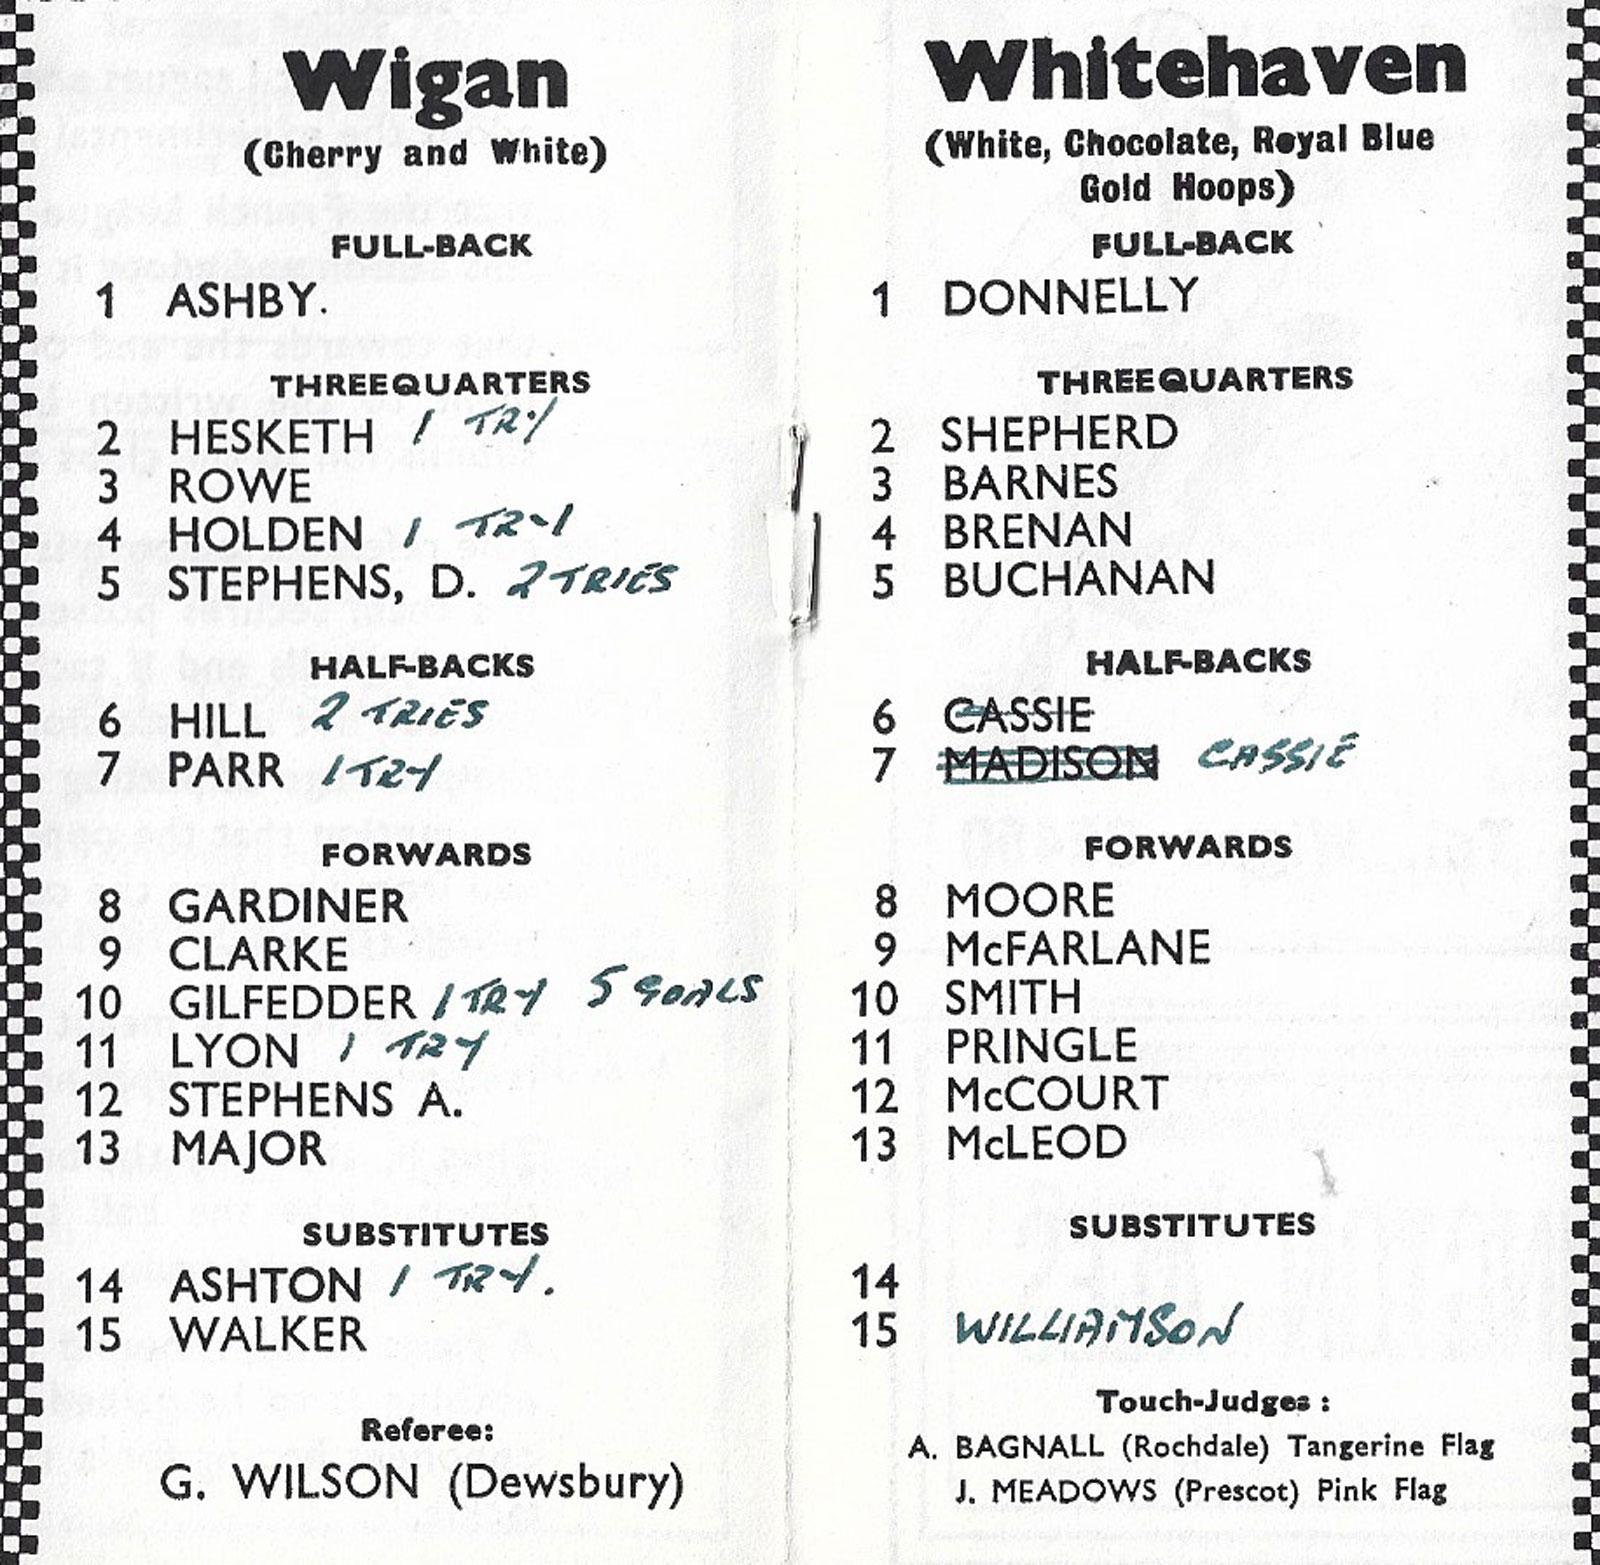 Wigan
(Cherry and White)
FULL-BACK
1 ASHBY.
THREEQUARTERS
2 HESKETH 1 TRY
3 ROWE
4 HOLDEN 1 TRY
5 STEPHENS, D. 2 TRIES
HALF-BACKS
6 HILL 2 TRIES
7 PARR 1 TRY
FORWARDS
8 GARDINER
9 CLARKE
10 GILFEDDER 1 TRY 5 GOALS
11 LYON 1 TRY
12 STEPHENS A.
13 MAJOR
SUBSTITUTES
14 ASHTON 1 TRY.
15 WALKER
Referee:
G. WILSON (Dewsbury)
Whitehaven
(White, Chocolate, Royal Blue
Gold Hoops)
FULL-BACK
1 DONNELLY
THREEQUARTERS
2 SHEPHERD
3 BARNES
4 BRENAN
5 BUCHANAN
HALF-BACKS
6 CASSIE
7 MADISON CASSIE
FORWARDS
8 MOORE
9 McFARLANE
10 SMITH
11 PRINGLE
12 McCOURT
13 McLEOD
SUBSTITUTES
14
15 WILLIAMSON
Touch-Judges :
A. BAGNALL (Rochdale) Tangerine Flag
J. MEADOWS (Prescot) Pink Flag